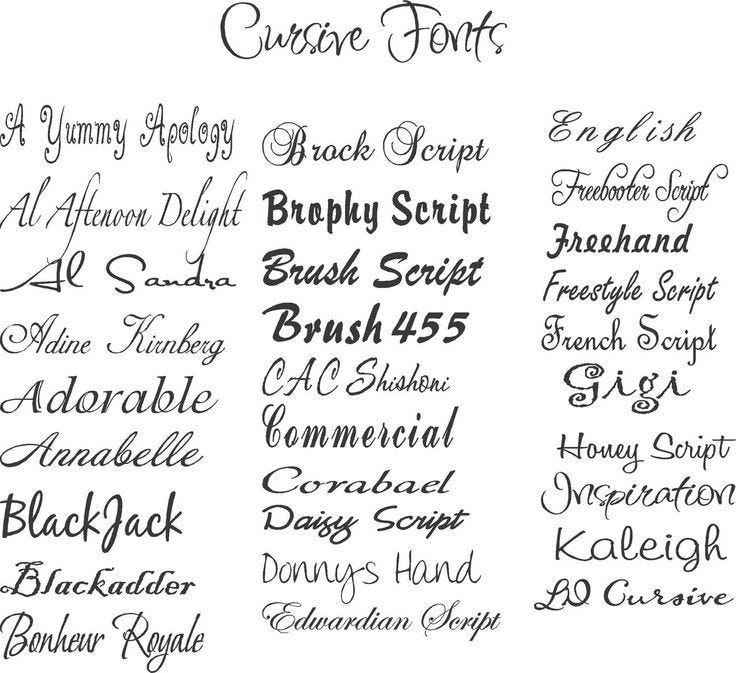 Cursive Fonts
A Yummy Apology
Al Aftenoon Delight
Al Sandra
Adine Kirnberg
Adorable
Annabelle
BlackJack
Blackadder
Bonheur Royale
Brock Script
Brophy Script
Brush Script
Brush 455
CAC Shishoni
Commercial
Corabael
Daizy Script
Donnys Hand
Edwardian Script
English
Freebooter Script
Freehand
Freestyle Script
French Script
Gigi
Honey Script
Inspiration
Kaleigh
LD Cursive